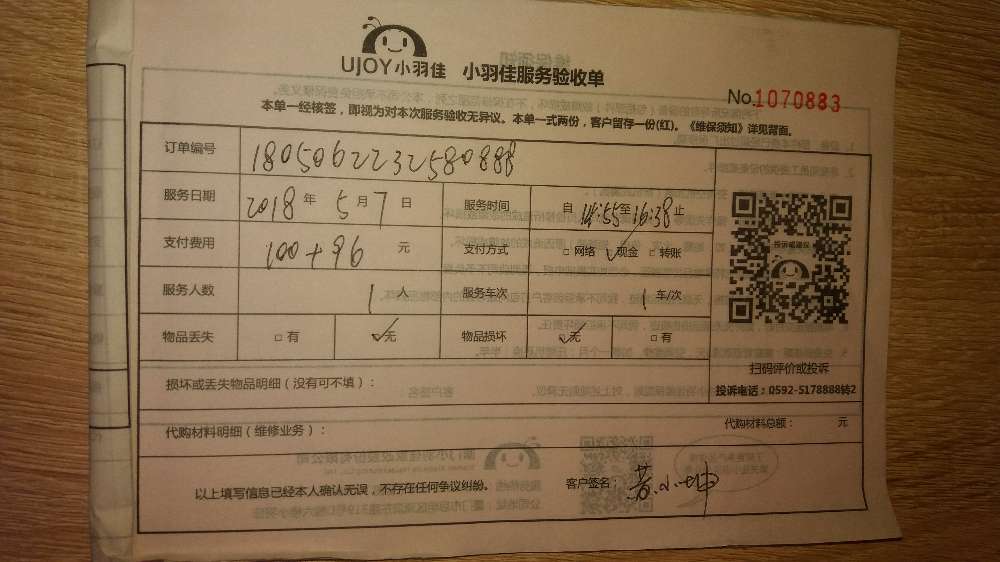 UJOY小羽佳 小羽佳服务验收单
No.1070883
本单一经核签，即视为对本次服务验收无异议。本单一式两份，客户留存一份(红)。《维保须知》详见背面。
订单编号 1805062232580888
服务日期 2018年5月7日 服务时间 自14:55至16:38止
支付费用 100+96元 支付方式 □网络 ✓现金 □转账
服务人数 1人 服务车次 1车/次
物品丢失 □有 ✓无 物品损坏 ✓无 □有
扫码评价或投诉
投诉电话：0592-5178888转2
损坏或丢失物品明细（没有可不填）：
代购材料明细（维修业务）： 代购材料总额： 元
以上填写信息已经本人确认无误，不存在任何争议纠纷。 客户签名：